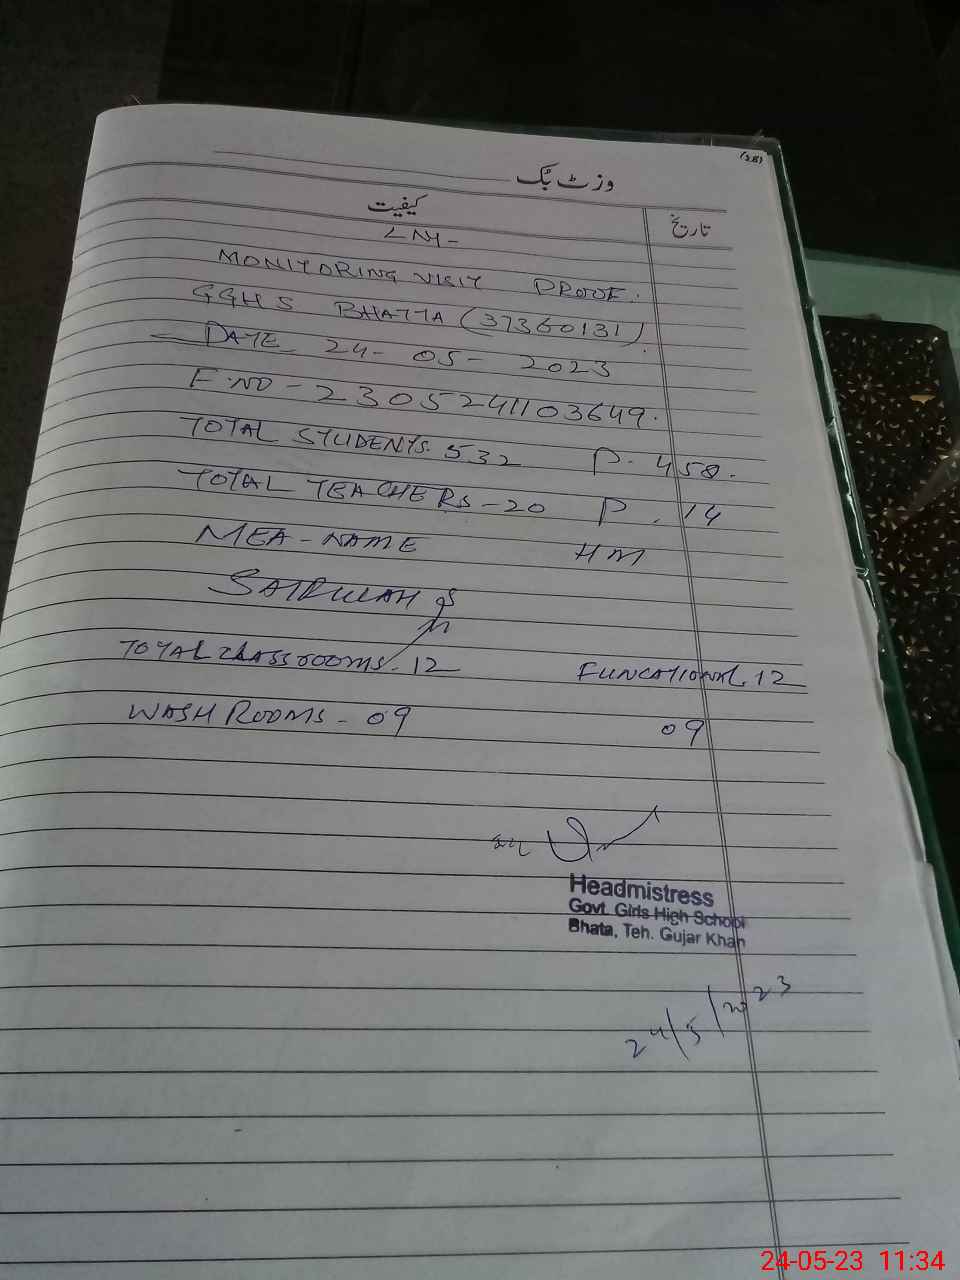 (28)
وزٹ بک
کیفیت تاریخ
LNY-
MONITORING VISIT PROOF.
GGHS BHATTA (37360131)
DATE 24-05-2023
E.NO-2305241103649.
TOTAL STUDENTS. 532 P. 458.
TOTAL TEACHERS-20 P. 14
MEA-NAME HM
TOTAL CLASSROOMS-12 FUNCATIONAL.12
WASH ROOMS-09 09
Headmistress
Govt. Girls High School
Bhata, Teh. Gujar Khan
24/5/2023
24-05-23 11:34